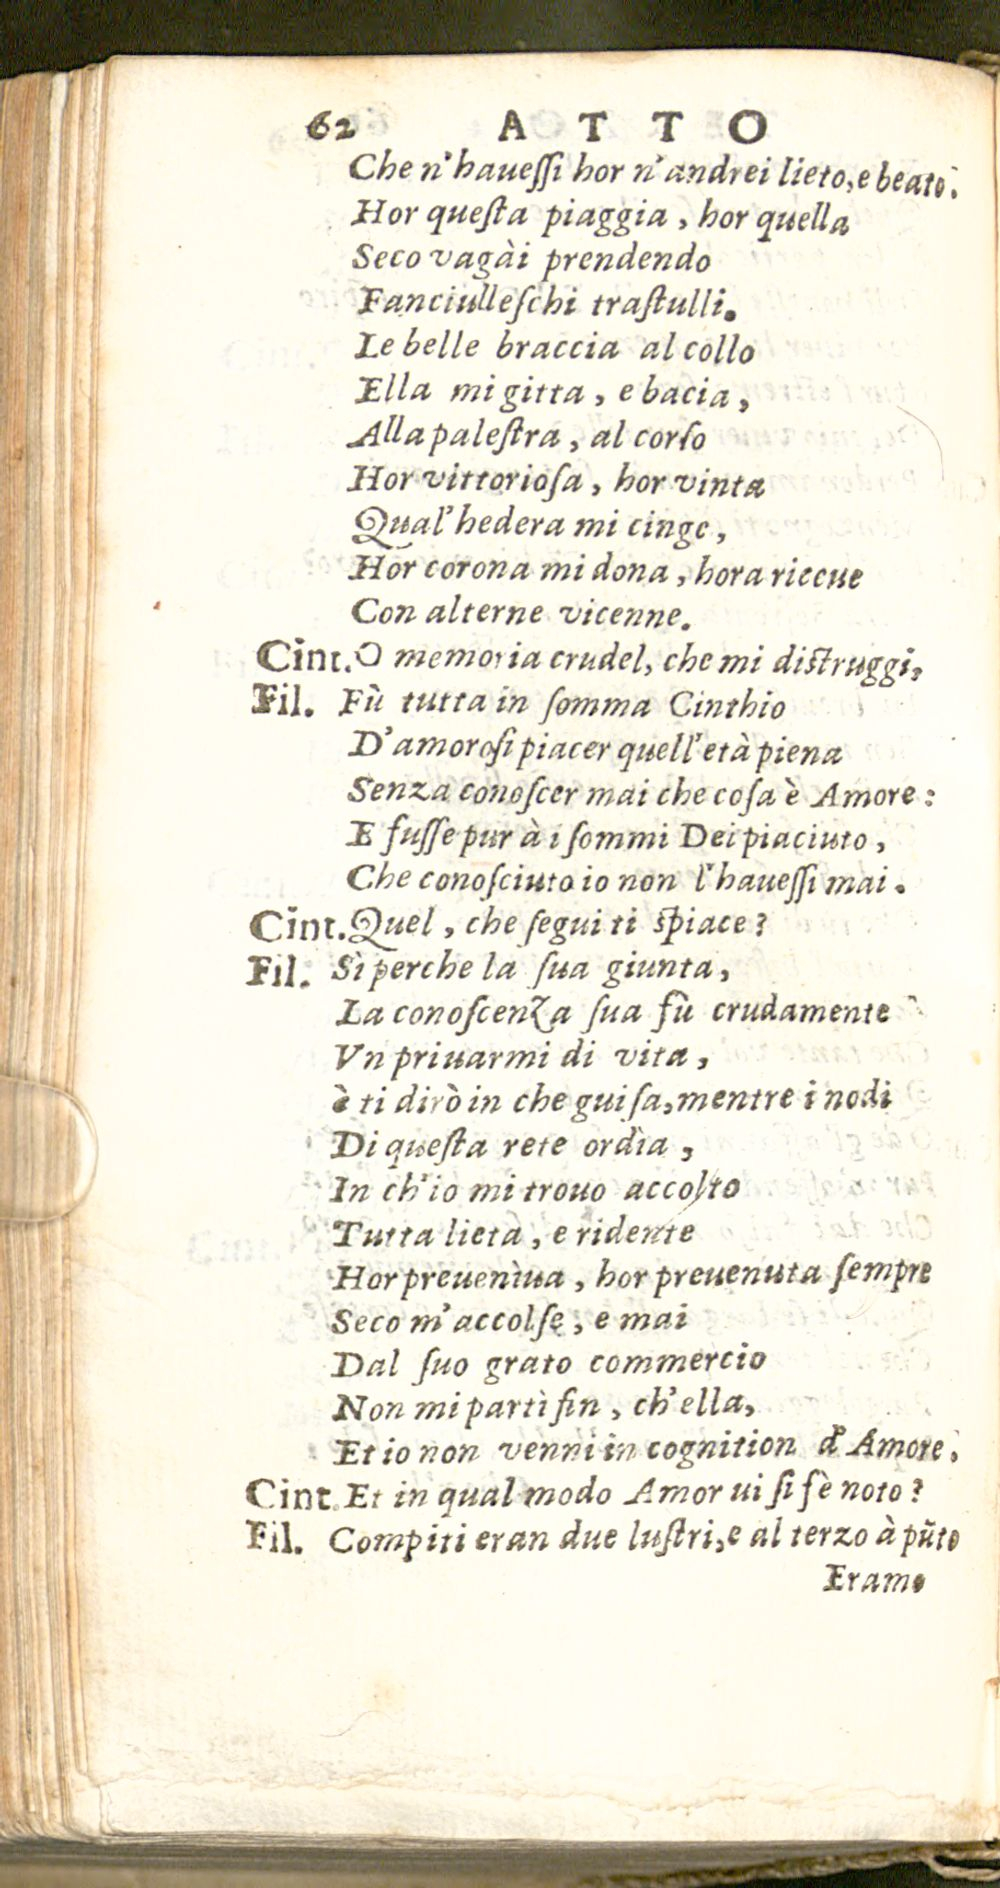 62 ATTO
Che n'hauessi hor n'andrei lieto, e beato.
Hor questa piaggia, hor quella
Seco vagài prendendo
Fanciulleschi trastulli.
Le belle braccia al collo
Ella mi gitta, e bacia,
Alla palestra, al corso
Hor vittoriosa, hor vinta
Qual'hedera mi cinge,
Hor corona mi dona, hora riceue
Con alterne vicenne.
Cint. O memoria crudel, che mi distruggi,
Fil. Fù tutta in somma Cinthio
D'amorosi piacer quell'età piena
Senza conoscer mai che cosa è Amore:
E fusse pur à i sommi Dei piaciuto,
Che conosciuto io non l'hauessi mai.
Cint. Quel, che segui ti spiace?
Fil. Sì perche la sua giunta,
La conoscenza sua fù crudamente
Vn priuarmi di vita,
è ti dirò in che guisa, mentre i nodi
Di questa rete ordìa,
In ch'io mi trouo accolto
Tutta lieta, e ridente
Hor preuenìua, hor preuenuta sempre
Seco m'accolse, e mai
Dal suo grato commercio
Non mi partì fin, ch'ella,
Et io non venni in cognition d'Amore.
Cint. Et in qual modo Amor ui si fè noto?
Fil. Compiti eran due lustri, e al terzo à pũto
Eramo